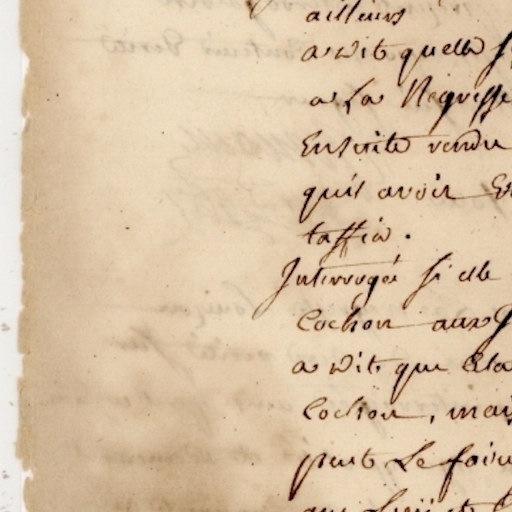 ailleurs
a dit quelle
a La Negresse
Ensuite vendu
quil avoit
taffia.
Interrogée si elle
Cochon aux
a dit que Cela
Cochon, mais
peut Le faire